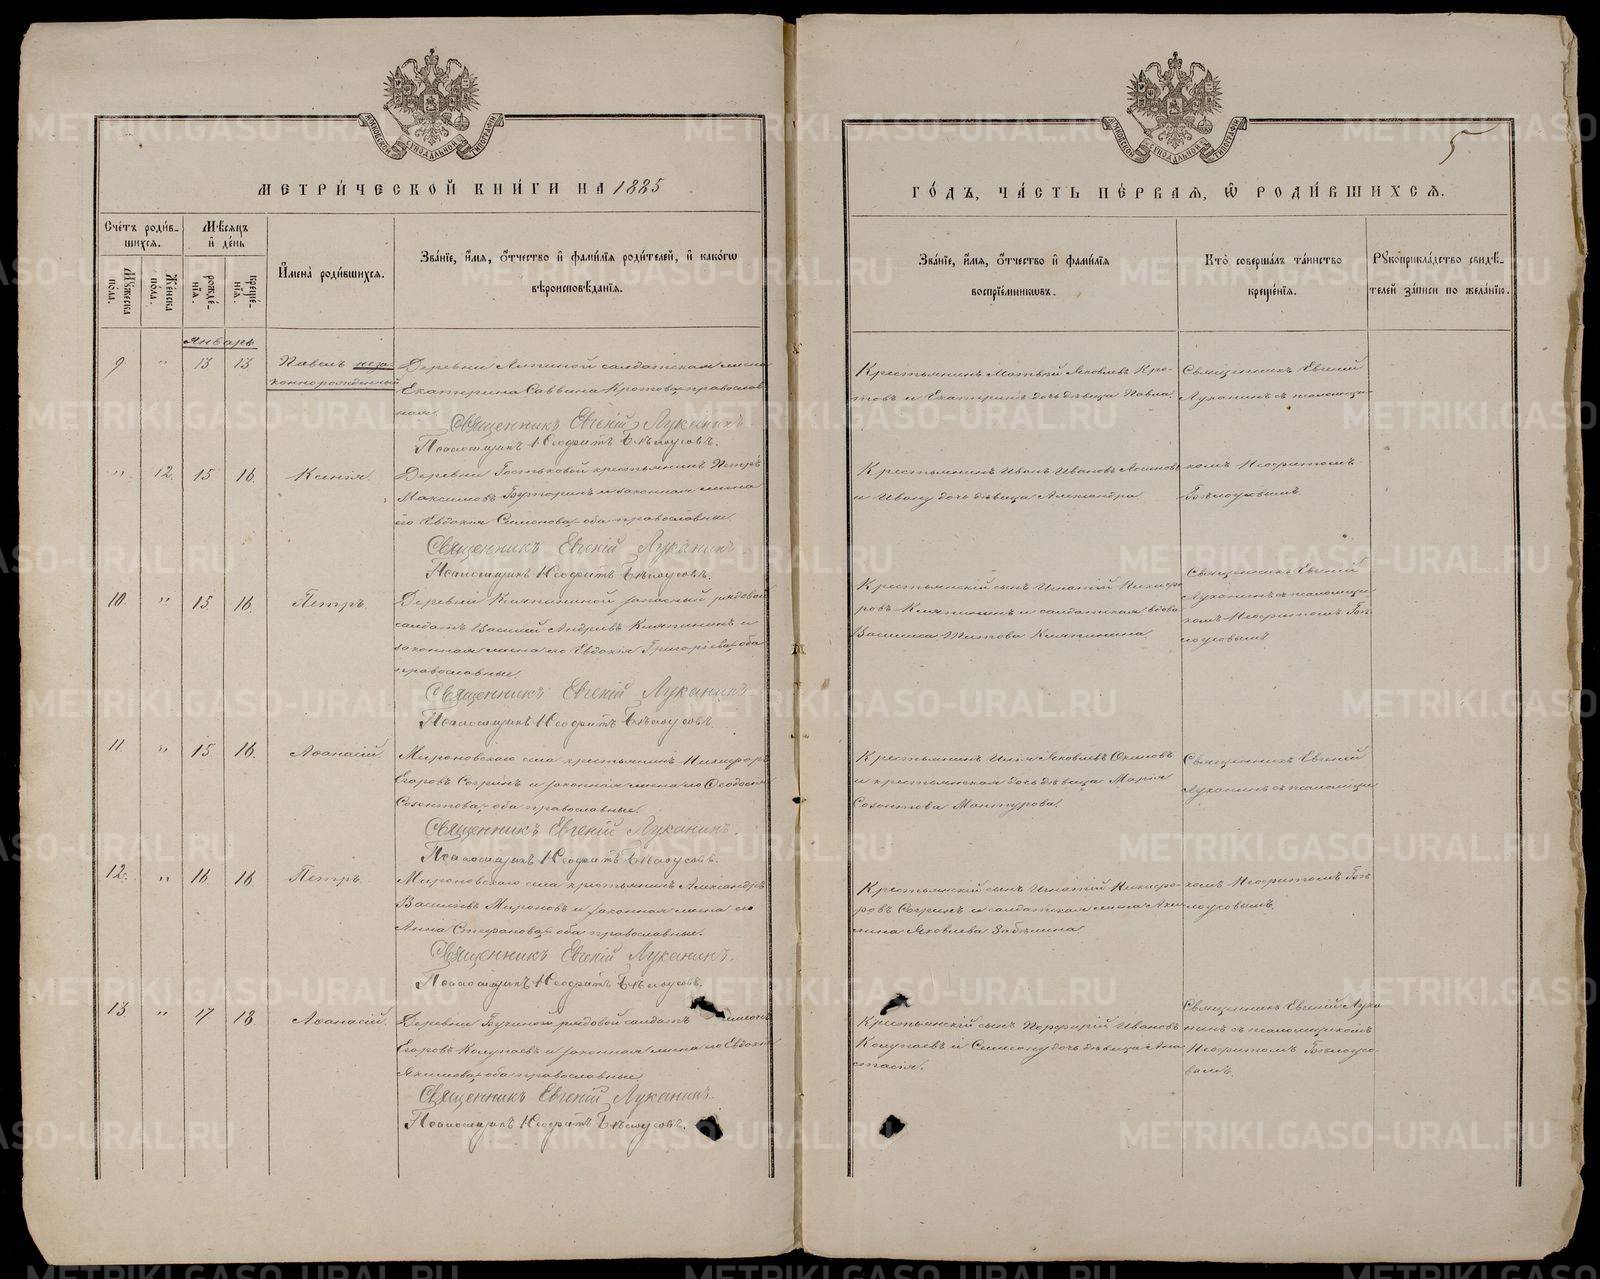 МЕТРИ́ЧЕСКОЙ КНИ́ГИ НА 1885
Сче́тъ роди́вшихся.
Мѣсяцъ и҆ де́нь
И҆мена̀ роди́вшихся.
Зва́нїе, и҆́мя, ѻ҆́тчество и҆ фами́лїя роди́телей, и҆ како́гѡ вѣроисповѣ́данїя.
Мꙋ́жеска по́ла.
Же́нска по́ла.
рожде́нїя.
креще́нїя.
Январь
9 " 13 13 Павелъ неза-
коннорожденный
Деревни солдатская жена
Екатерина Саввина Кротова, православ-
ная.
Священникъ Евгеній Луканинъ
Псаломщикъ Неофитъ Бѣлоусовъ.
" 12. 15 16. Ксенія.
Деревни крестьянинъ Петръ
Максимовъ и законная жена
его Евдокія Симонова, оба православные.
Священникъ Евгеній Луканинъ
Псаломщикъ Неофитъ Бѣлоусовъ.
10. " 15. 16. Петръ.
Деревни запасный рядовой
солдатъ Василій Андреевъ Кляпининъ и
законная жена его Евдокія Григоріева, оба
православные.
Священникъ Евгеній Луканинъ
Псаломщикъ Неофитъ Бѣлоусовъ.
11. " 15. 16. Аѳанасій.
Мироновскаго села крестьянинъ Никифоръ
Егоровъ Согринъ и законная жена его Ѳеодосія
Созонтова, оба православные.
Священникъ Евгеній Луканинъ.
Псаломщикъ Неофитъ Бѣлоусовъ.
12. " 16. 16. Петръ.
Мироновскаго села крестьянинъ Александръ
Васильевъ Мироновъ и законная жена его
Анна Стефанова, оба православные.
Священникъ Евгеній Луканинъ.
Псаломщикъ Неофитъ Бѣлоусовъ.
13 " 17 18. Аѳанасій.
Деревни рядовой солдатъ
Егоровъ Колупаевъ и законная жена его Евдокія
Якимова, оба православные.
Священникъ Евгеній Луканинъ.
Псаломщикъ Неофитъ Бѣлоусовъ.
5
ГО́ДЪ, ЧА́СТЬ ПЕ́РВАЯ, Ѽ РОДИ́ВШИХСЯ.
Зва́нїе, и҆́мя, ѻ҆́тчество и҆ фами́лїя воспрїе́мникѡвъ.
Кто̀ соверша́лъ та́инство креще́нїя.
Рꙋкоприкла́дство свидѣ́телей за́писи по жела́нїю.
Крестьянинъ Матвѣй Яковлевъ Кро-
товъ и Екатерина дочь дѣвица Павла.
Священникъ Евгеній
Луканинъ съ псаломщи-
Крестьянинъ Иванъ Ивановъ
и Ивану дочь дѣвица Александра
комъ Неофитомъ
Бѣлоусовымъ.
Крестьянскій сынъ Игнатій Никифо-
ровъ Кляпининъ и солдатская вдова
Василиса Титова Кляпинина
Священникъ Евгеній
Луканинъ съ псаломщи-
комъ Неофитомъ Бѣ-
лоусовымъ
Крестьянинъ Илья Яковлевъ
и крестьянская дочь дѣвица Марія
Созонтова Мантурова.
Священникъ Евгеній
Луканинъ съ псаломщи-
Крестьянскій сынъ Игнатій Никифо-
ровъ Согринъ и солдатская жена Аки-
лина Яковлева Забѣлина
комъ Неофитомъ Бѣ-
лоусовымъ.
Крестьянскій сынъ Порфирій Ивановъ
Колупаевъ и Симеону дочь дѣвица Ана-
стасія.
Священникъ Евгеній Лука-
нинъ съ псаломщикомъ
Неофитомъ Бѣлоусо-
вымъ.
METRIKI.GASO-URAL.RU